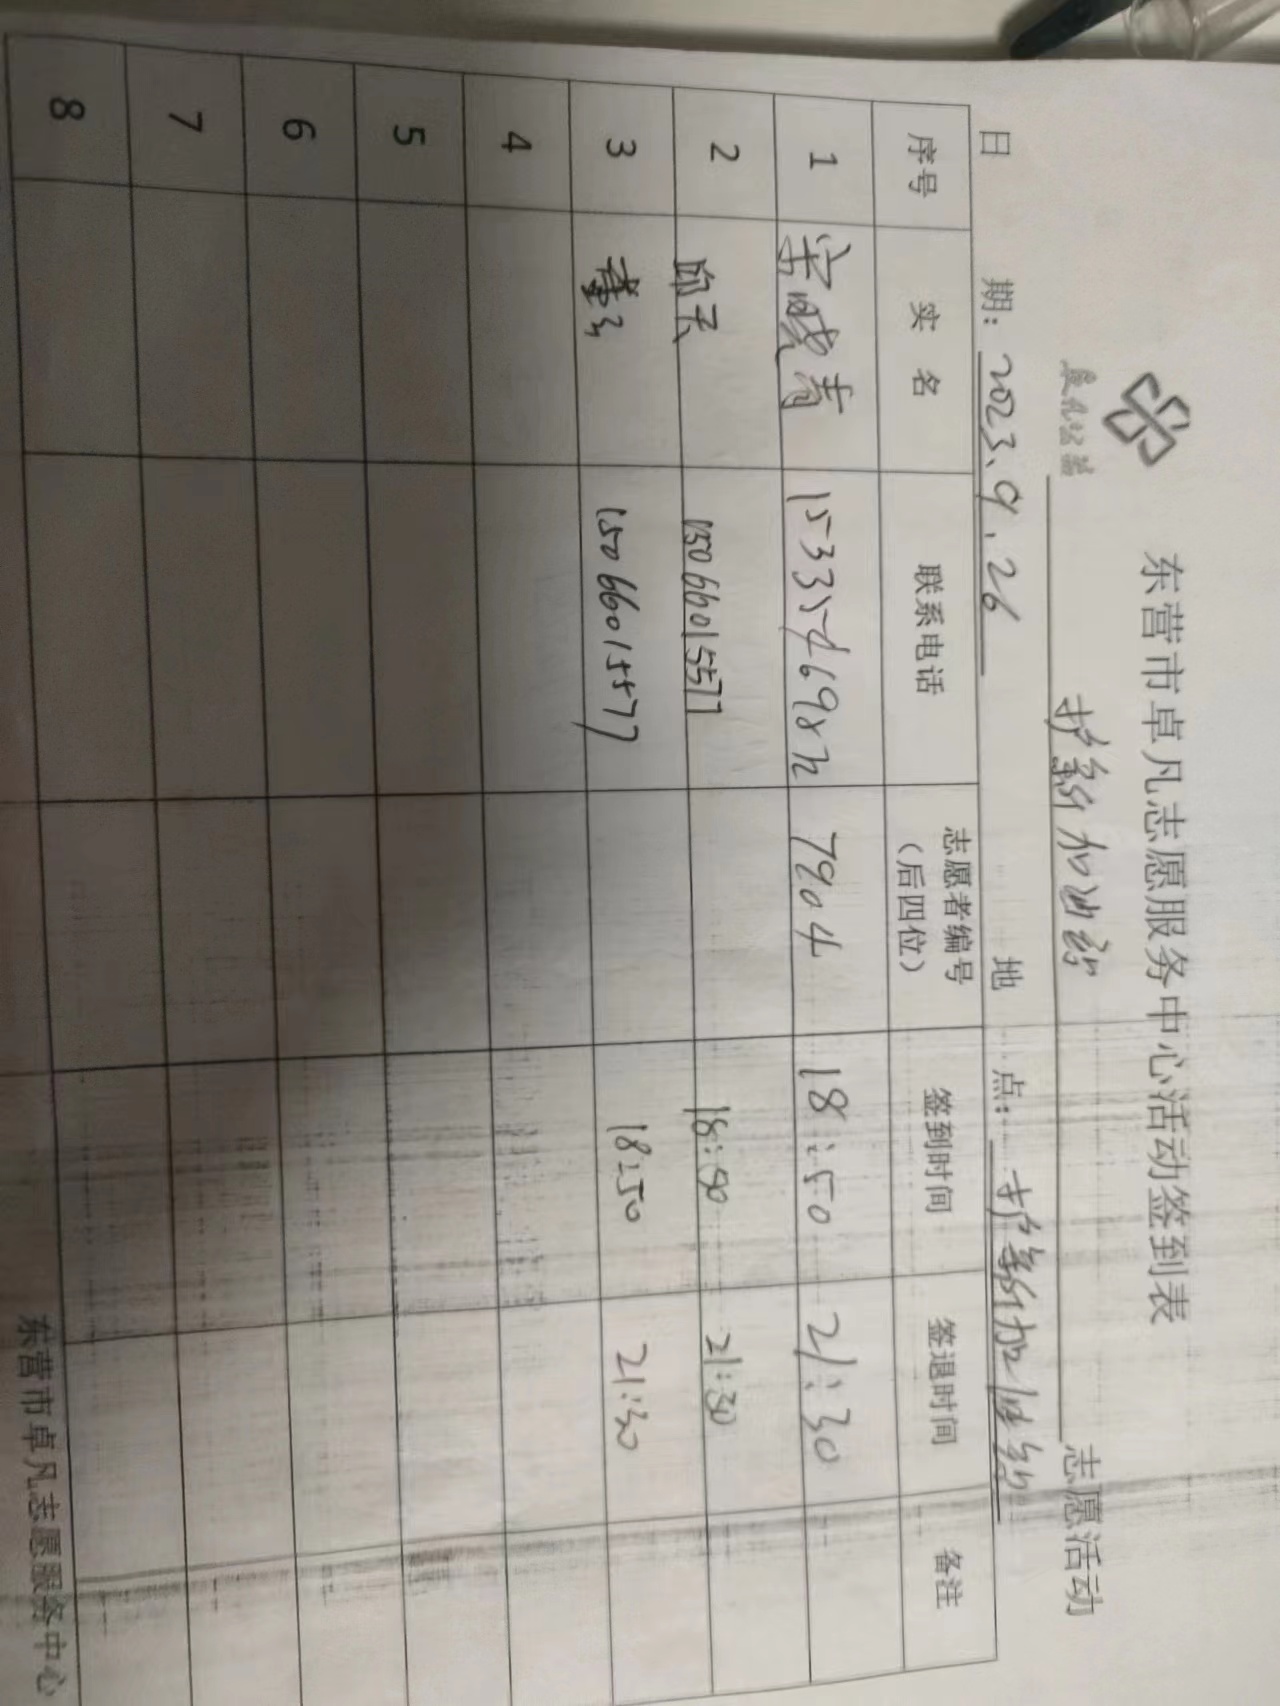 东营市卓凡志愿服务中心活动签到表
护鹞加油站 志愿活动
日 期：2023.9.26 地 点：
序号 实 名 联系电话 志愿者编号（后四位） 签到时间 签退时间 备注
1 宋晓青 7904 18:50 21:30
2 邱天 15066015577 18:50 21:30
3 15066015577 18:50 21:30
4
5
6
7
8
东营市卓凡志愿服务中心